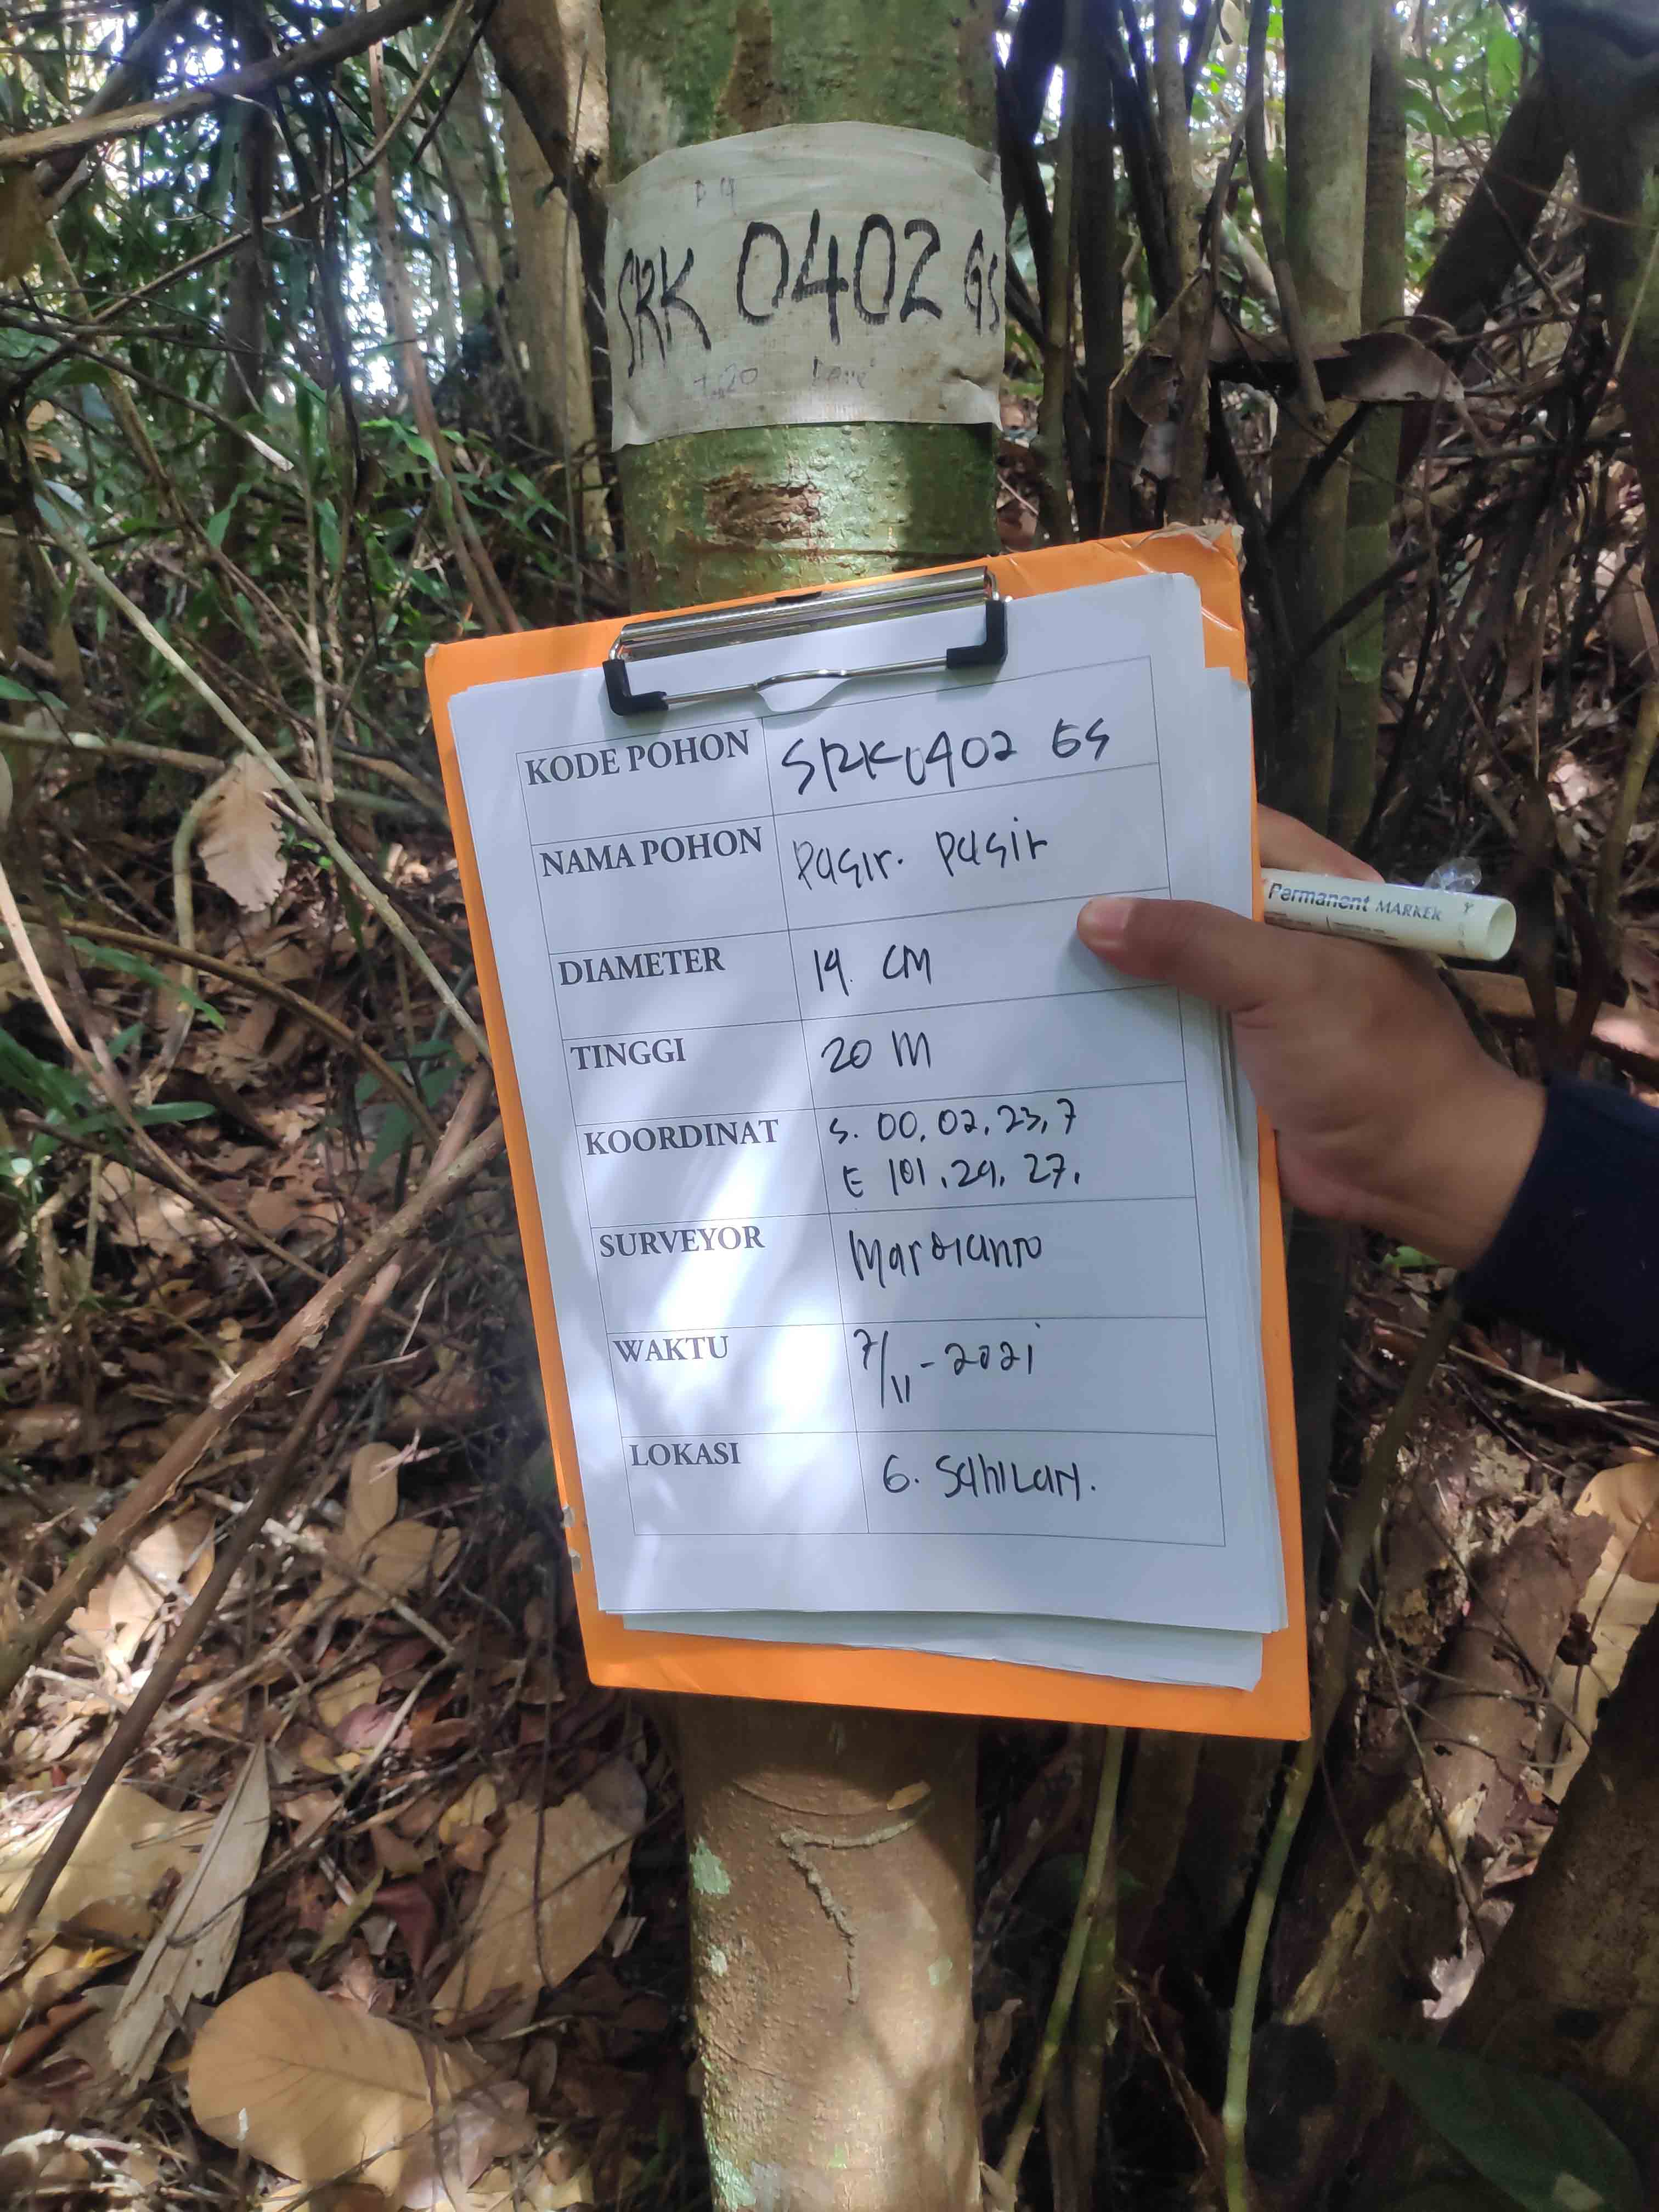 SRK 0402 GS
KODE POHON SRK0402 GS
NAMA POHON Pasir. Pasir
DIAMETER 14. CM
TINGGI 20 M
KOORDINAT S. 00. 02. 23, 7
E 101. 29. 27.
SURVEYOR Mardianto
WAKTU 7/11-2021
LOKASI G. SahiLan.
Permanent MARKER